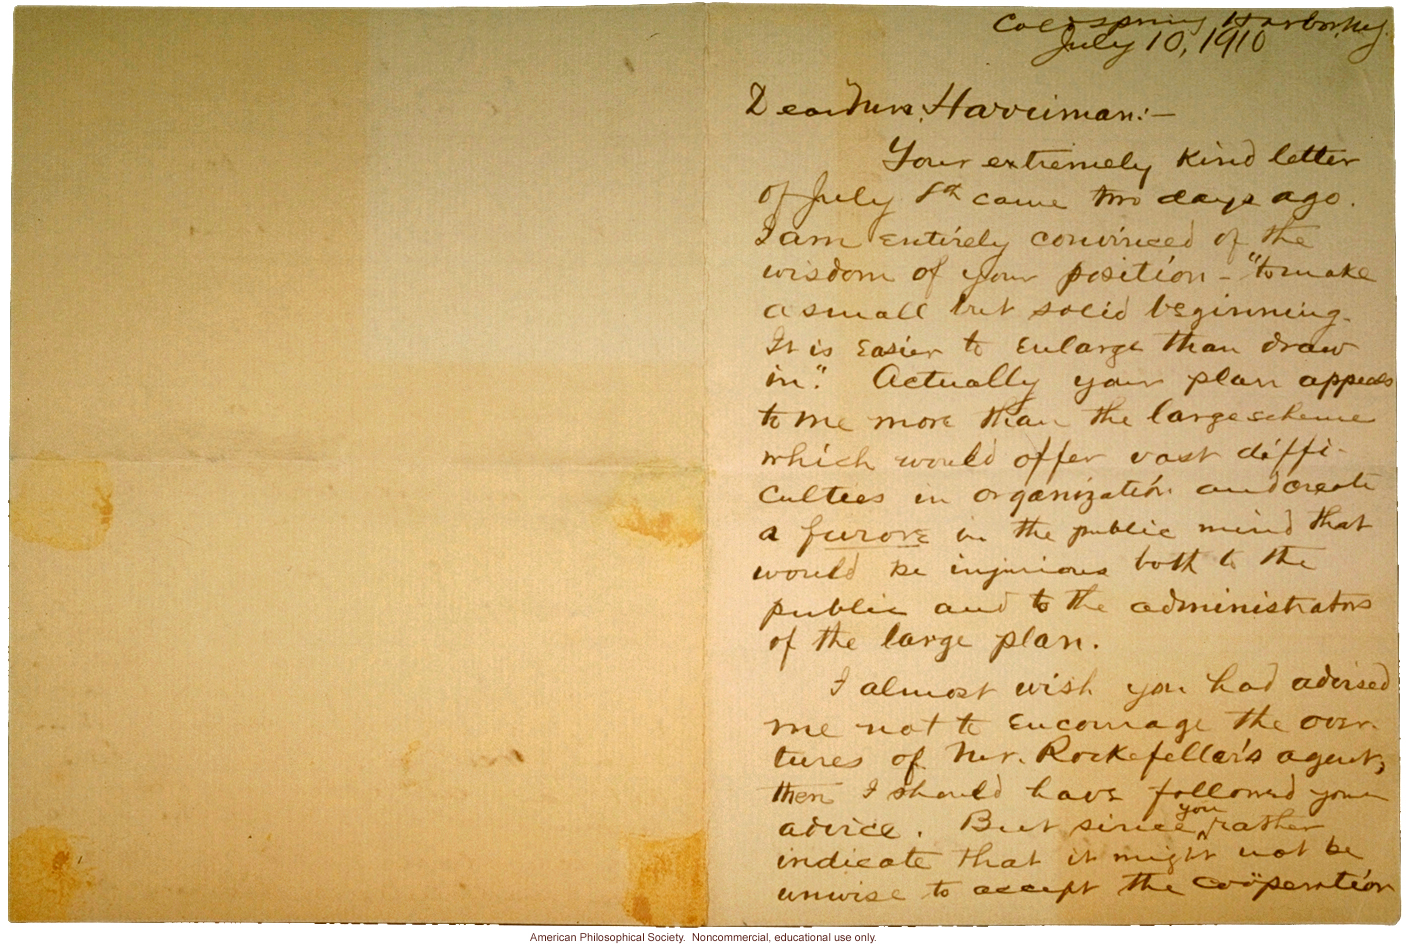 Coldspring Harbor, N.Y.
July 10, 1910
Dear Mrs. Harriman:—
Your extremely kind letter
of July 8th came two days ago.
I am entirely convinced of the
wisdom of your position – "to make
a small but solid beginning.
It is easier to enlarge than draw
in." Actually your plan appeals
to me more than the large scheme
which would offer vast diffi-
culties in organization and create
a furore in the public mind that
would be injurious both to the
public and to the administrators
of the large plan.
I almost wish you had advised
me not to encourage the over-
tures of Mr. Rockefeller's agent;
then I should have followed your
advice. But since you rather
indicate that it might not be
unwise to accept the coöperation
American Philosophical Society. Noncommercial, educational use only.